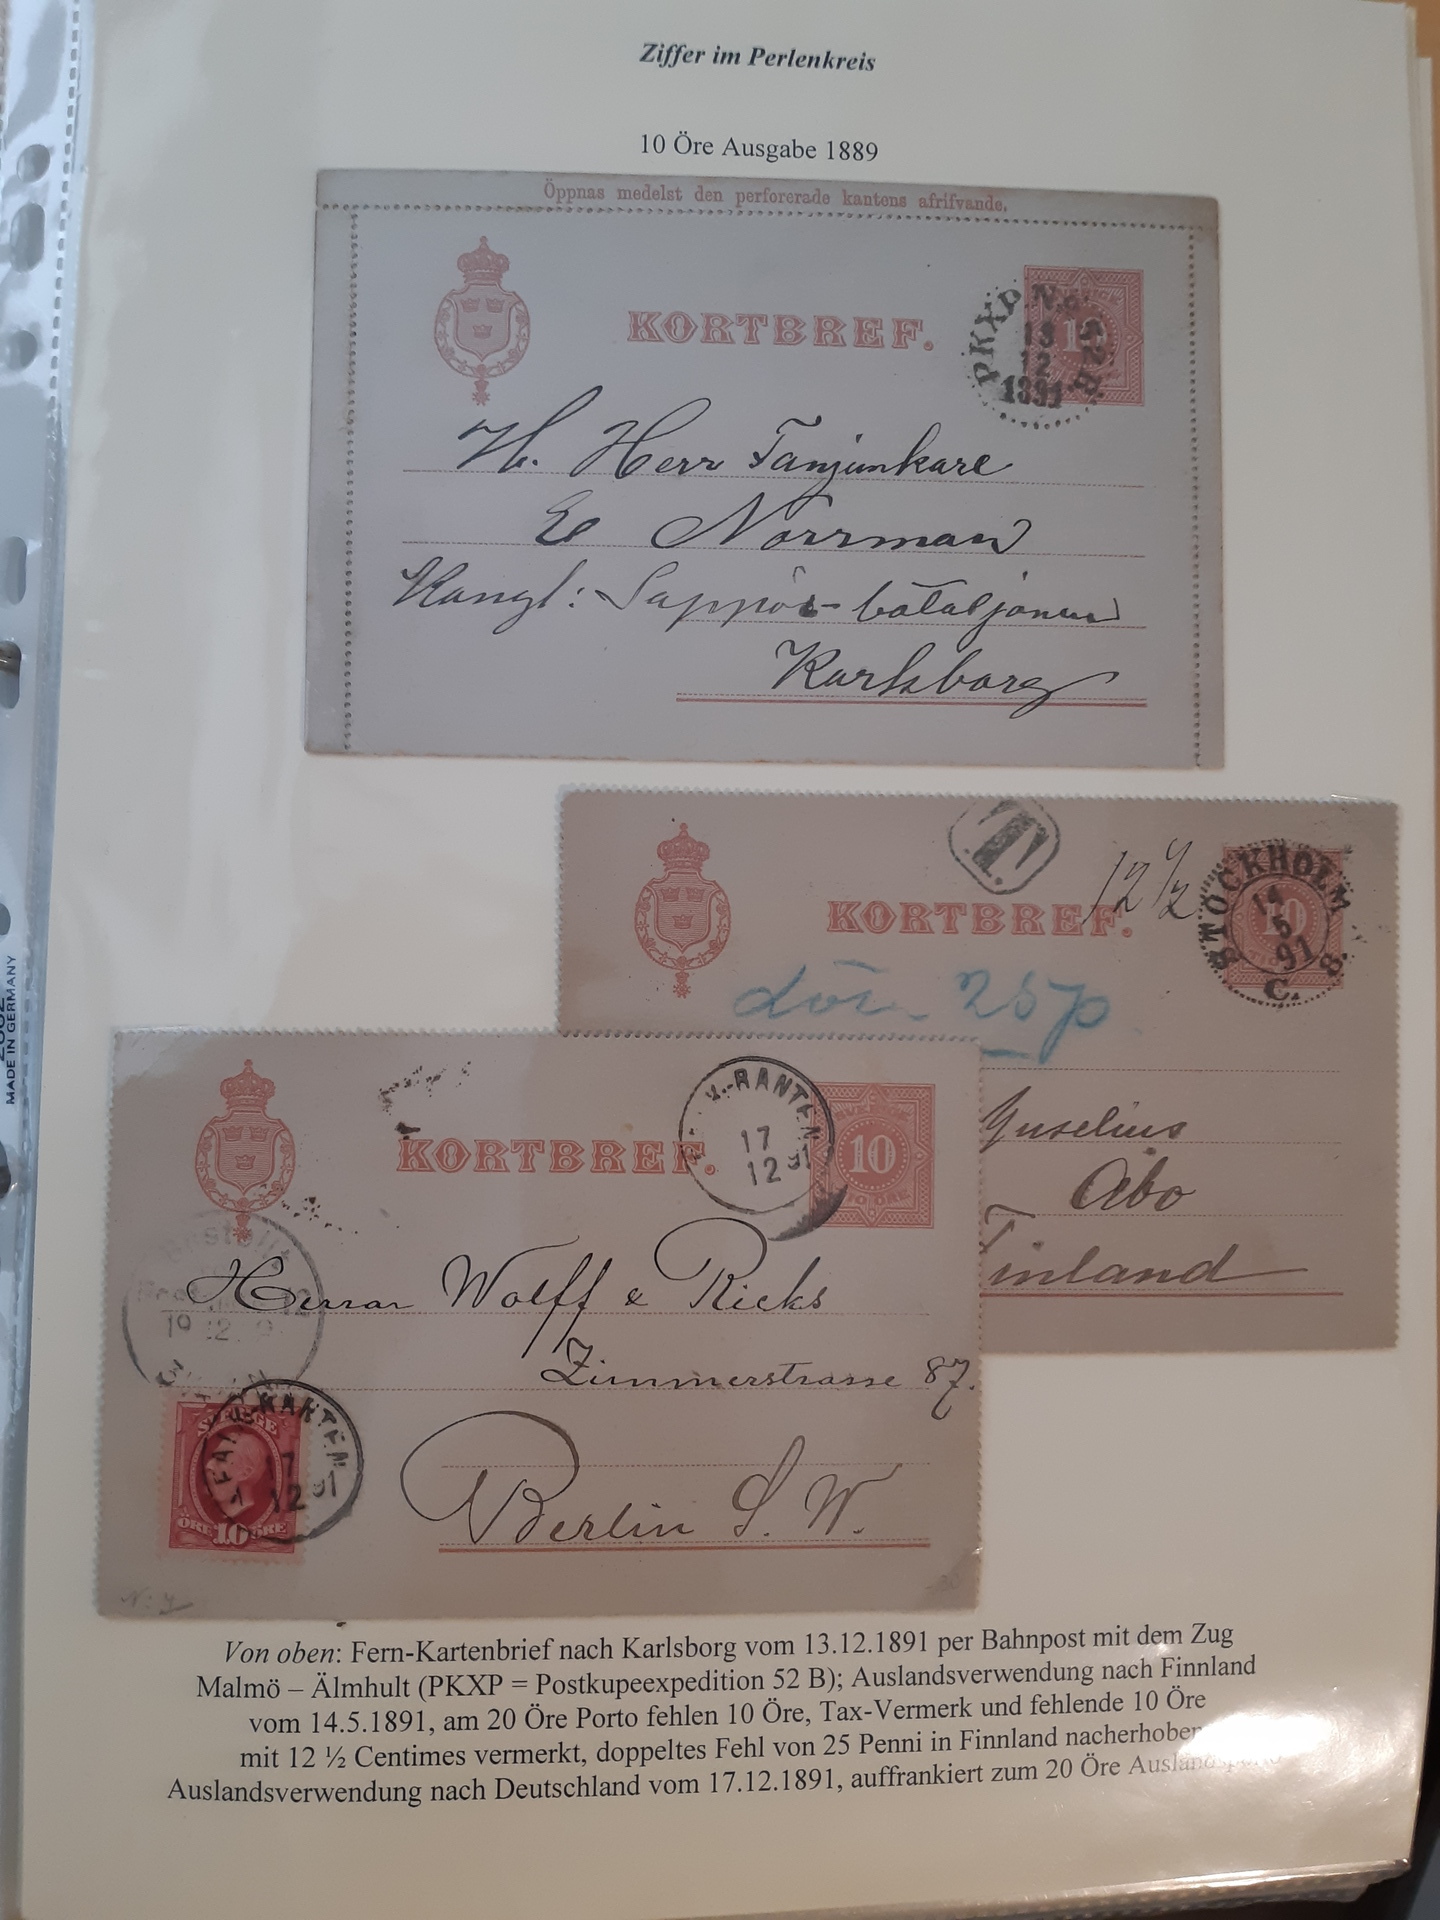 Ziffer im Perlenkreis
10 Öre Ausgabe 1889
Öppnas medelst den perforerade kantens afrifvande.
KORTBREF.
PKXP. No. 52 B
13
12
1891
H. Herr Fanjunkare
E Norrman
Kangl: Sappörs-bataljonen
Karlsborg
T.
KORTBREF.
12 1/2
STOCKHOLM
14
5
91
C.
10
lös. 25 p
Guselius
Abo
Finland
KORTBREF.
-RANTEN
17
12 91
10
TIO ÖRE
Bestellt
19 12 9
Herrar Wolff & Ricks
Zimmerstrasse 87.
Berlin S. W.
SVERIGE
ÖRE 10 ÖRE
17
12 91
MADE IN GERMANY
Von oben: Fern-Kartenbrief nach Karlsborg vom 13.12.1891 per Bahnpost mit dem Zug
Malmö – Älmhult (PKXP = Postkupeexpedition 52 B); Auslandsverwendung nach Finnland
vom 14.5.1891, am 20 Öre Porto fehlen 10 Öre, Tax-Vermerk und fehlende 10 Öre
mit 12 ½ Centimes vermerkt, doppeltes Fehl von 25 Penni in Finnland nacherhoben
Auslandsverwendung nach Deutschland vom 17.12.1891, auffrankiert zum 20 Öre Auslandsporto